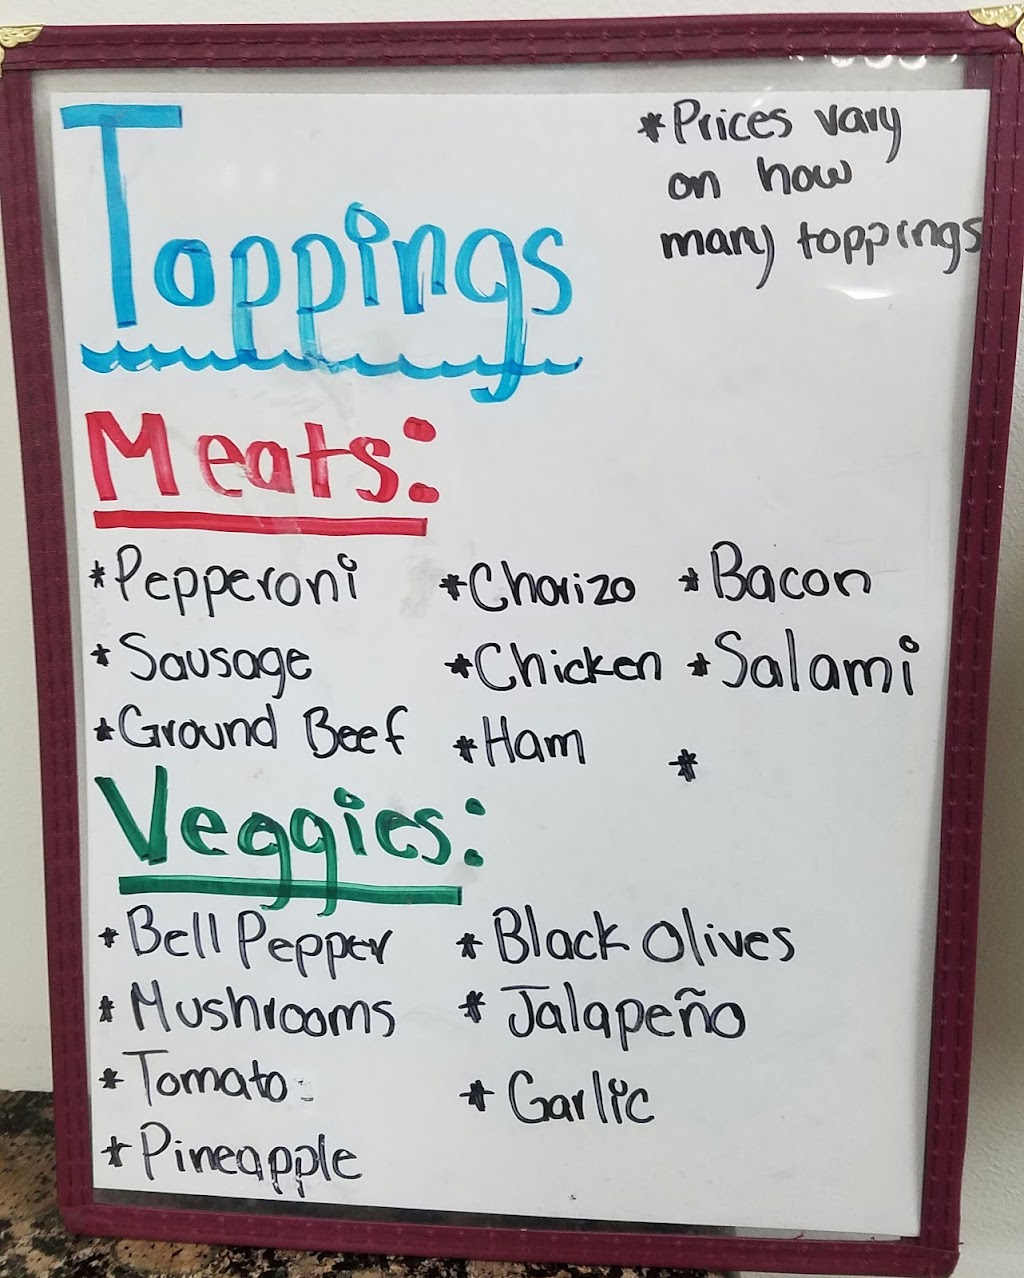 Toppings
*Prices vary
on how
many toppings
Meats:
*Pepperoni
*Sausage
*Ground Beef
*Chorizo
*Chicken
*Ham
*Bacon
*Salami
*
Veggies:
*Bell Pepper
*Mushrooms
*Tomato
*Pineapple
*Black Olives
*Jalapeño
*Garlic